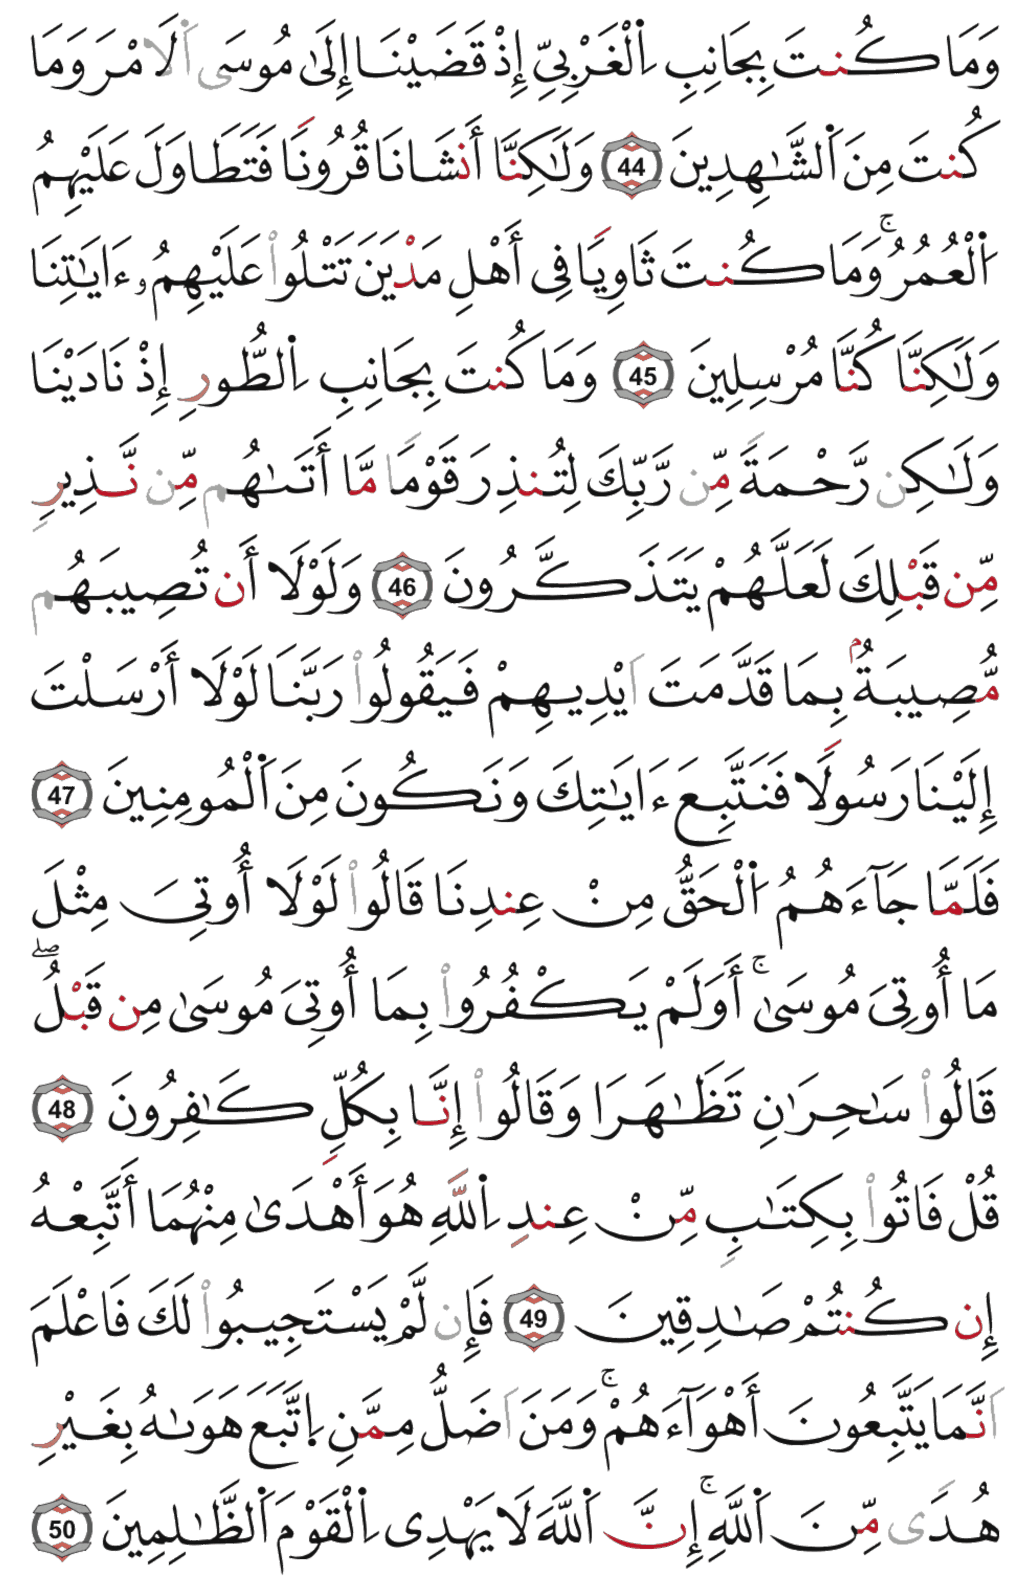 وَمَا كُنتَ بِجَانِبِ اِ۬لْغَرْبِيِّ إِذْ قَضَيْنَا إِلَىٰ مُوسَى اَ۬لَامْرَ وَمَا
كُنتَ مِنَ اَ۬لشَّٰهِدِينَ 44 وَلَٰكِنَّا أَنشَانَا قُرُونًا فَتَطَاوَلَ عَلَيْهِمُ
اُ۬لْعُمُرُ ۚ وَمَا كُنتَ ثَاوِيًا فِي أَهْلِ مَدْيَنَ تَتْلُواْ عَلَيْهِمُۥ ءَايَٰتِنَا
وَلَٰكِنَّا كُنَّا مُرْسِلِينَ 45 وَمَا كُنتَ بِجَانِبِ اِ۬لطُّورِ إِذْ نَادَيْنَا
وَلَٰكِن رَّحْمَةً مِّن رَّبِّكَ لِتُنذِرَ قَوْمًا مَّا أَتَىٰهُم مِّن نَّذِيرٍ
مِّن قَبْلِكَ لَعَلَّهُمْ يَتَذَكَّرُونَ 46 وَلَوْلَا أَن تُصِيبَهُم
مُّصِيبَةُۢ بِمَا قَدَّمَتَ اَيْدِيهِمْ فَيَقُولُواْ رَبَّنَا لَوْلَا أَرْسَلْتَ
إِلَيْنَا رَسُولًا فَنَتَّبِعَ ءَايَٰتِكَ وَنَكُونَ مِنَ اَ۬لْمُومِنِينَ 47
فَلَمَّا جَآءَهُمُ اُ۬لْحَقُّ مِنْ عِندِنَا قَالُواْ لَوْلَا أُوتِيَ مِثْلَ
مَا أُوتِيَ مُوسَىٰ ۚ أَوَلَمْ يَكْفُرُواْ بِمَا أُوتِيَ مُوسَىٰ مِن قَبْلُ ۖ
قَالُواْ سَٰحِرَٰنِ تَظَّٰهَرَا وَقَالُواْ إِنَّا بِكُلٍّ كَٰفِرُونَ 48
قُلْ فَاتُواْ بِكِتَٰبٍ مِّنْ عِندِ اِ۬للَّهِ هُوَ أَهْدَىٰ مِنْهُمَا أَتَّبِعْهُ
إِن كُنتُمْ صَٰدِقِينَ 49 فَإِن لَّمْ يَسْتَجِيبُواْ لَكَ فَاعْلَمَ
اَنَّمَا يَتَّبِعُونَ أَهْوَآءَهُمْ ۚ وَمَنَ اَضَلُّ مِمَّنِ اِ۪تَّبَعَ هَوَىٰهُ بِغَيْرِ
هُدًى مِّنَ اَ۬للَّهِ ۚ إِنَّ اَ۬للَّهَ لَا يَهْدِي اِ۬لْقَوْمَ اَ۬لظَّٰلِمِينَ 50